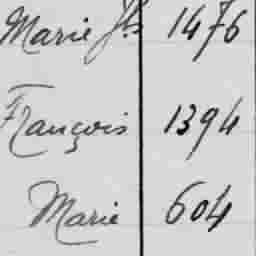 Marie Jh 1476
François 1394
Marie 604